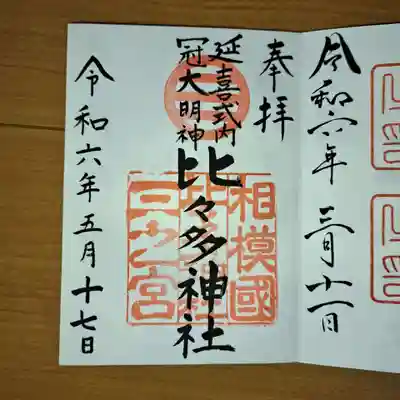 令和六年 三月十一日
奉拝
延喜式内
冠大明神
比々多神社
相模國
三之宮
令和六年五月十七日